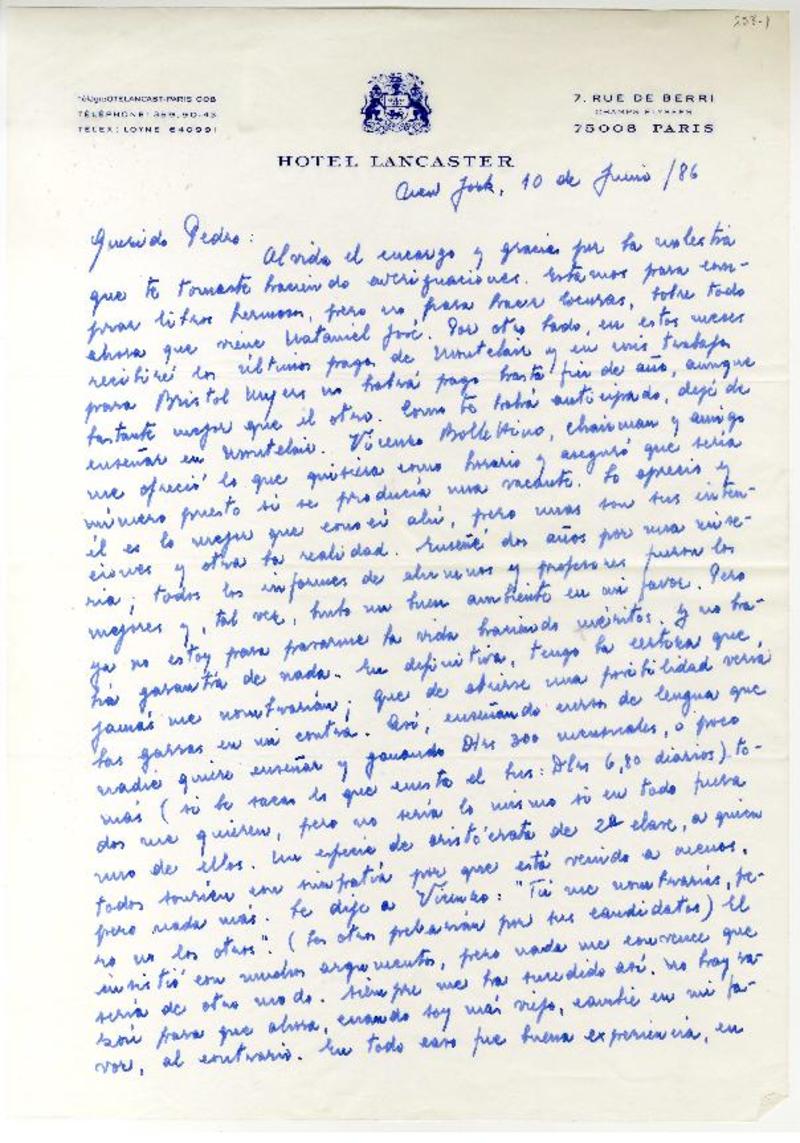 253-1
TÉLÉGR: OTELANCAST-PARIS COB
TÉLÉPHONE: 359.90-43
TELEX: LOYNE 640991
7. RUE DE BERRI
CHAMPS ELYSEES
75008 PARIS
HOTEL LANCASTER
New York, 10 de Junio /86
Querido Pedro:
Olvida el encargo y gracias por la molestia
que te tomaste haciendo averiguaciones. Estamos para com-
prar libros hermosos, pero no para hacer locuras, sobre todo
ahora que viene Nataniel José. Por otro lado, en estos meses
recibiré los últimos pagos de Montclair y en mis trabajos
para Bristol Myers no habrá pago hasta fin de año, aunque
bastante mejor que el otro. Como te había anticipado, dejé de
enseñar en Montclair. Vicenzo Bollettino, chairman y amigo
me ofreció lo que quisiera como horario y aseguró que sería
número puesto si se producía una vacante. Lo aprecio y
él es lo mejor que conocí ahí, pero unas son sus inten-
ciones y otra la realidad. Enseñé dos años por una mise-
ria; todos los informes de alumnos y profesores fueron los
mejores y, tal vez, hubo un buen ambiente en mi favor. Pero
ya no estoy para pasarme la vida haciendo méritos. Y no ha-
bía garantía de nada. En definitiva, tengo la certeza que,
jamás me nombrarían; que de abrirse una posibilidad vería
las garras en mi contra. Así, enseñando cursos de lengua que
nadie quiere enseñar y ganando Dlrs 300 mensuales, o poco
más (si le sacas lo que cuesta el bus: Dlrs 6,80 diarios) to-
dos me quieren, pero no sería lo mismo si en todo fuera
uno de ellos. Un especie de aristócrata de 2ª clase, a quien
todos sonríen con simpatía por que está venido a menos,
pero nada más. Le dije a Vicenzo: "Tú me nombrarías, pe-
ro no los otros". (Los otros pelearían por sus candidatos) El
insistió con muchos argumentos, pero nada me convence que
sería de otro modo. Siempre me ha sucedido así. No hay ra-
zón para que ahora, cuando soy más viejo, cambie en mi fa-
vor, al contrario. En todo caso fue buena experiencia, en